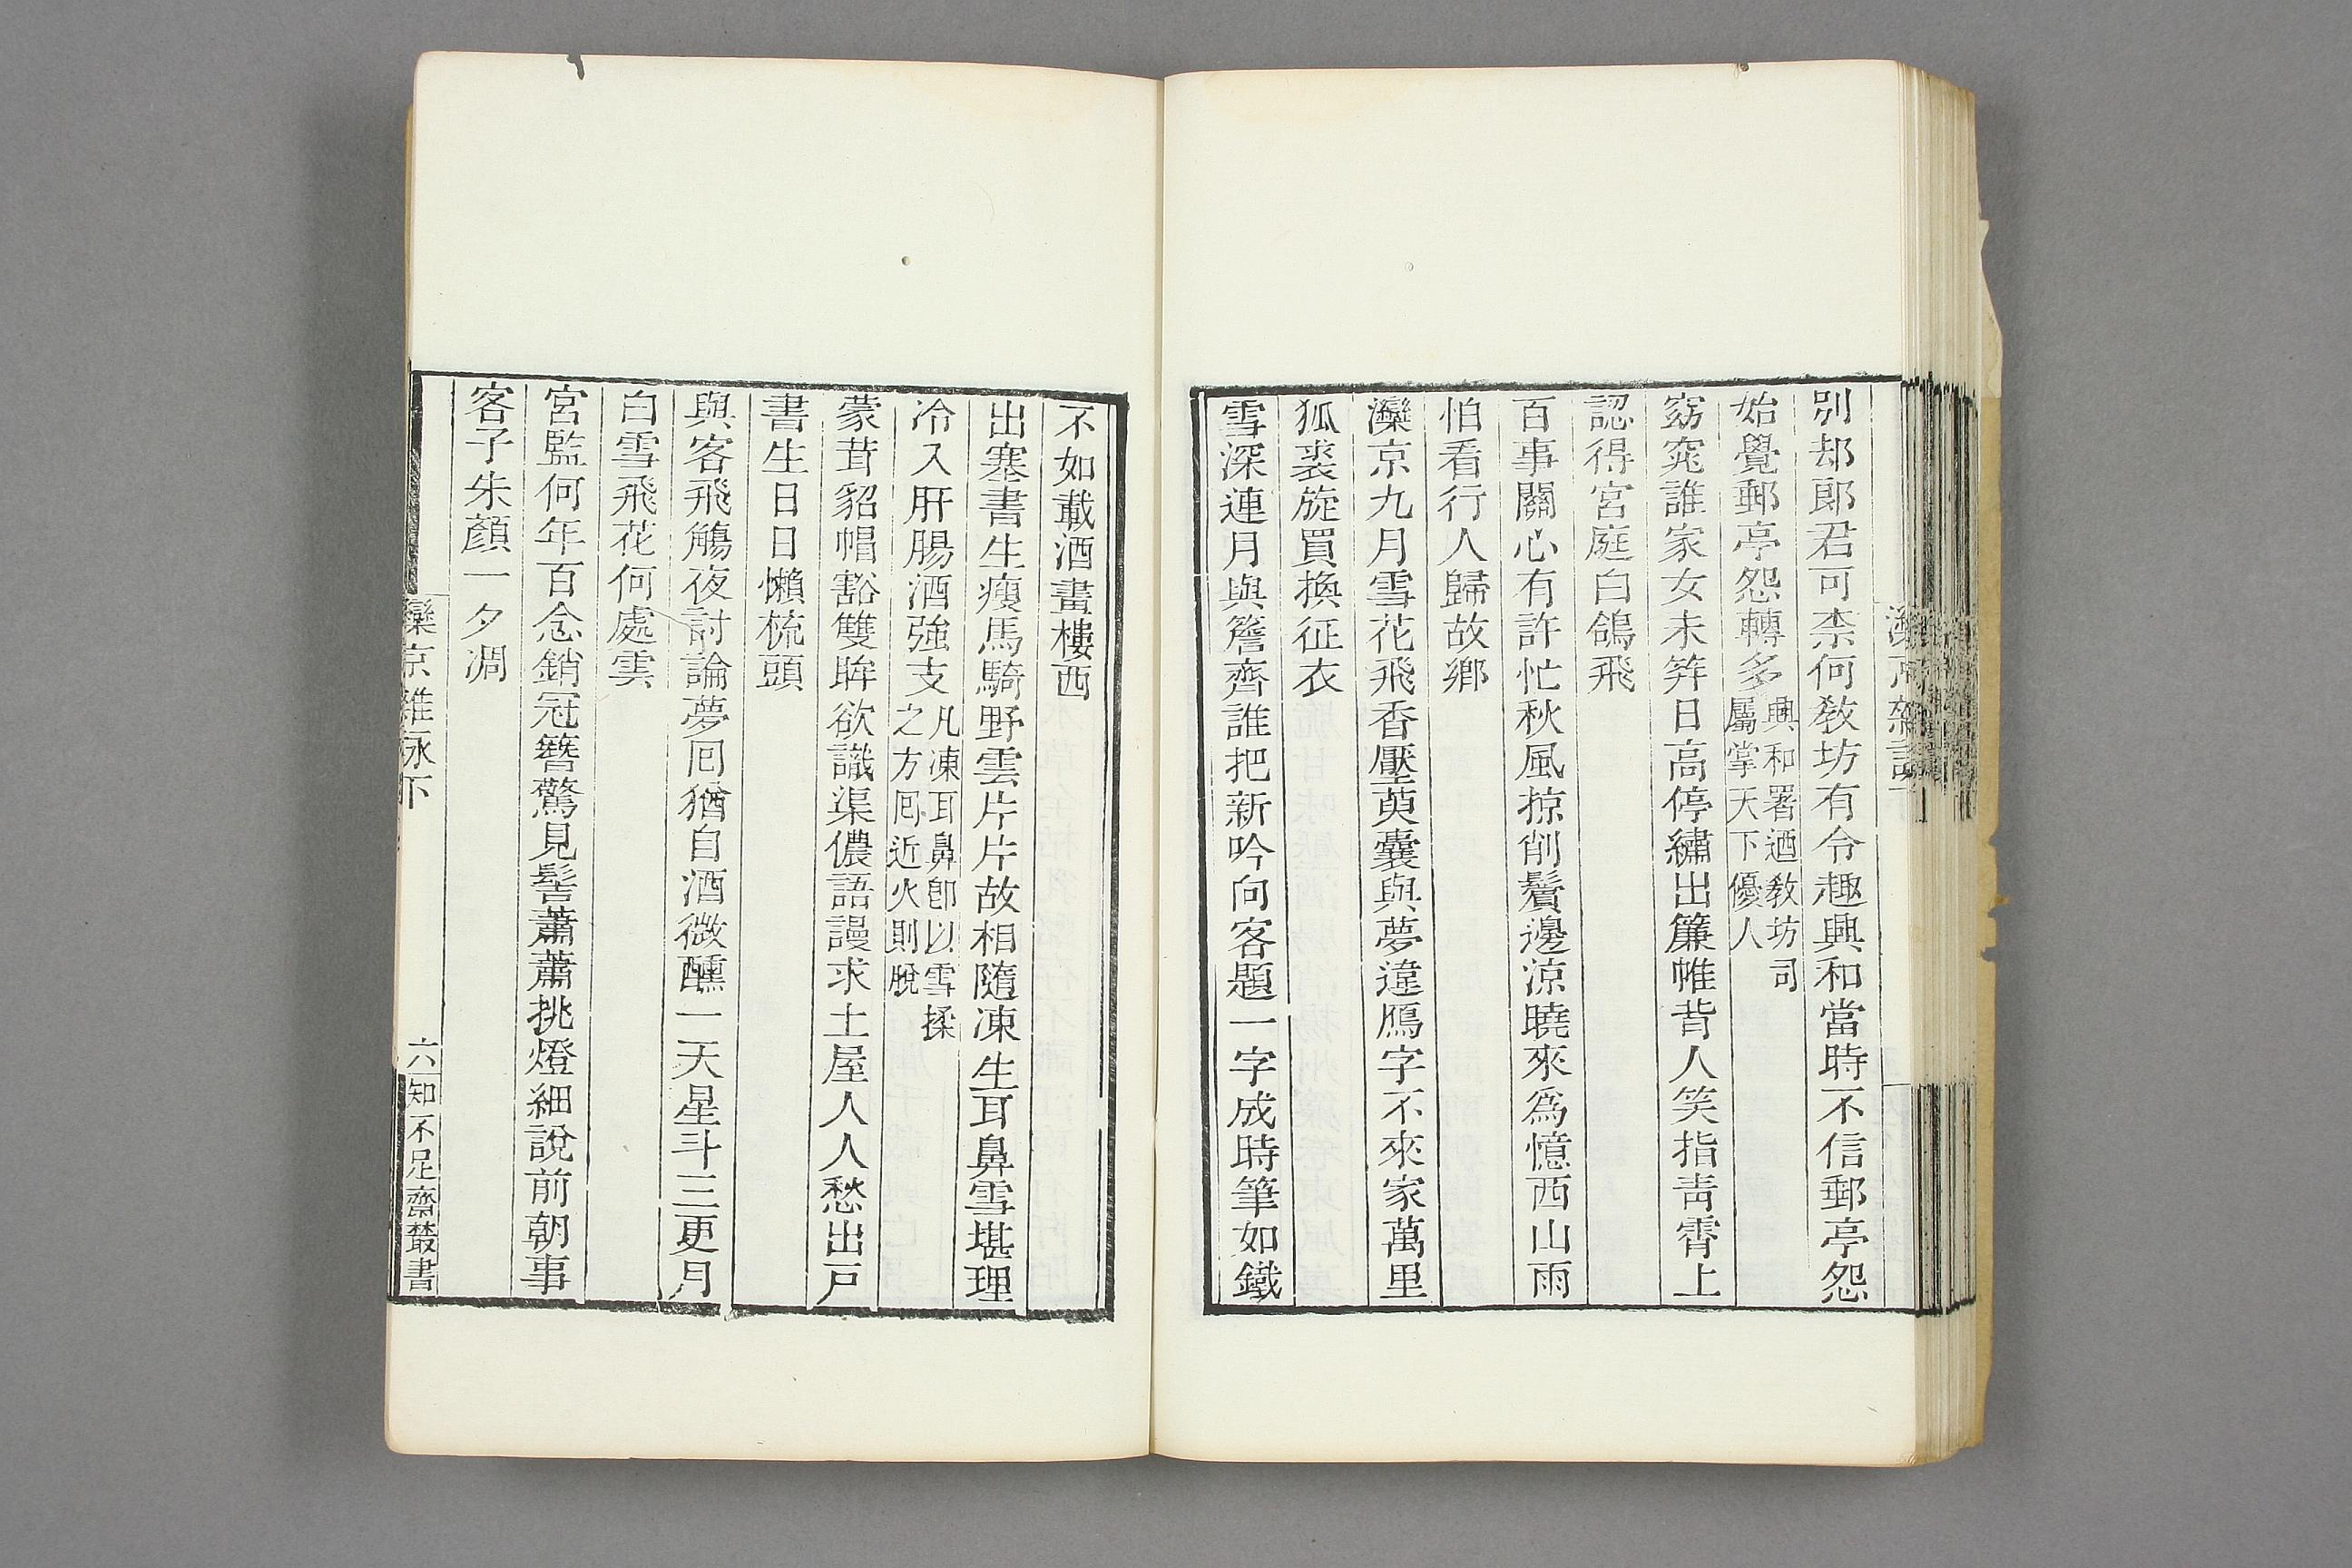 別却郞君可柰何敎坊有令趣興和當時不信郵亭怨
始覺郵亭怨轉多興和署迺敎坊司屬掌天下優人
窈窕誰家女未笄日高停繡出簾帷背人笑指靑霄上
認得宮庭白鴿飛
百事關心有許忙秋風掠削鬢邊涼曉來爲憶西山雨
怕看行人歸故鄉
灤京九月雪花飛香壓萸囊與夢違鴈字不來家萬里
狐裘旋買換征衣
雪深連月與簷齊誰把新吟向客題一字成時筆如鐵
不如載酒畫樓西
出塞書生瘦馬騎野雲片片故相隨凍生耳鼻雪堪理
冷入肝腸酒強支凡凍耳鼻卽以雪揉之方囘近火則脫
蒙茸貂帽豁雙眸欲識渠儂語謾求土屋人人愁出戸
書生日日懶梳頭
與客飛觴夜討論夢囘猶自酒微醺一天星斗三更月
白雪飛花何處雲
宮監何年百念銷冠簪驚見髻蕭蕭挑燈細說前朝事
客子朱顏一夕凋
灤京雜詠下
六
知不足齋叢書